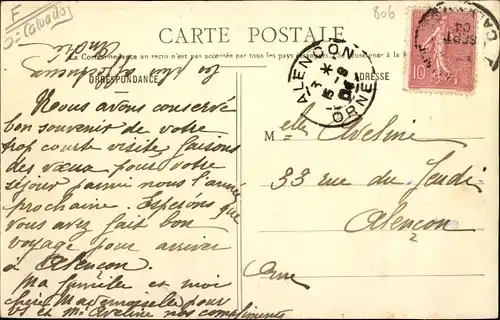 F
D = Calvados
806
CARTE POSTALE
La Correspondance au recto n'est pas acceptée par tous les pays étrangers. Se renseigner à la Poste
CORRESPONDANCE
ADRESSE
ALENCON
ORNE
10
Nous avons conservé
bon souvenir de votre
trop court visite, faisons
des vœux pour votre
séjour parmi nous l'année
prochaine. Espérons que
vous avez fait bon
voyage pour arriver
à Alencon.
Ma famille et moi
chère Mademoiselle pour
vs et Mr Aveline nos compliments
Melle Aveline
33 rue du Jeudi
Alencon
Orne